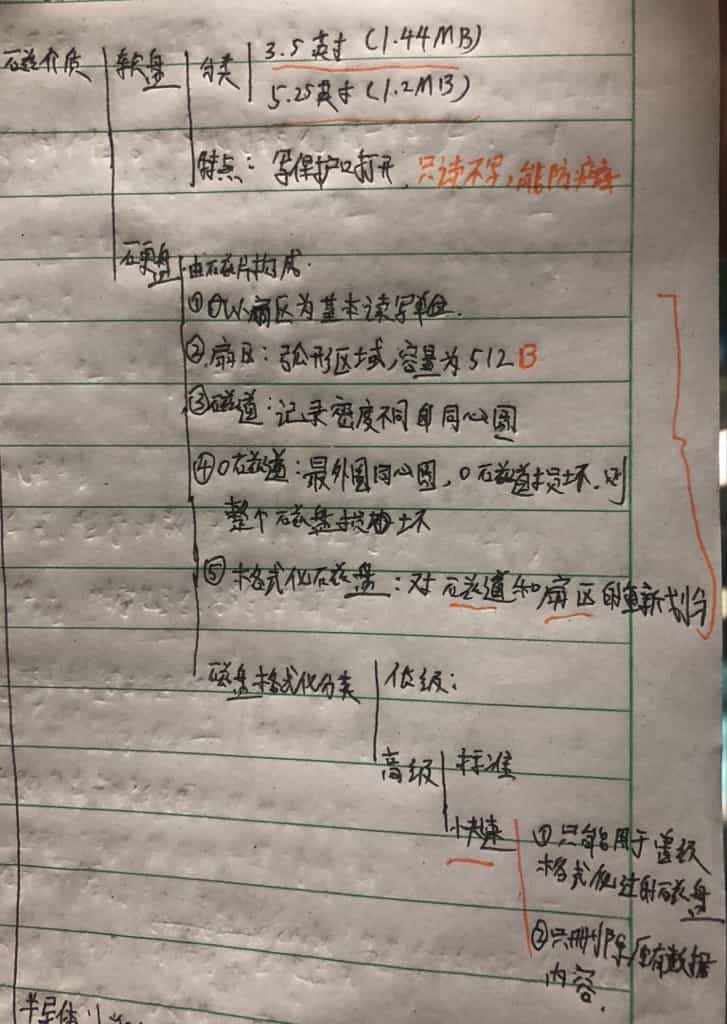 磁介质 软盘 分类 3.5英寸(1.44MB)
5.25英寸(1.2MB)
特点: 写保护口打开, 只读不写,能防病毒
硬盘 由磁片构成.
①以扇区为基本读写单位.
②扇区: 弧形区域,容量为512B
③磁道:记录密度不同的同心圆
④0磁道:最外圈同心圆,0磁道损坏.则
整个磁盘损坏
⑤格式化磁盘:对磁道和扇区的重新划分
磁盘格式化分类 低级:
高级 标准
快速 ①只能用于曾经
格式化过的磁盘
②只删除原有数据
内容.
半导体